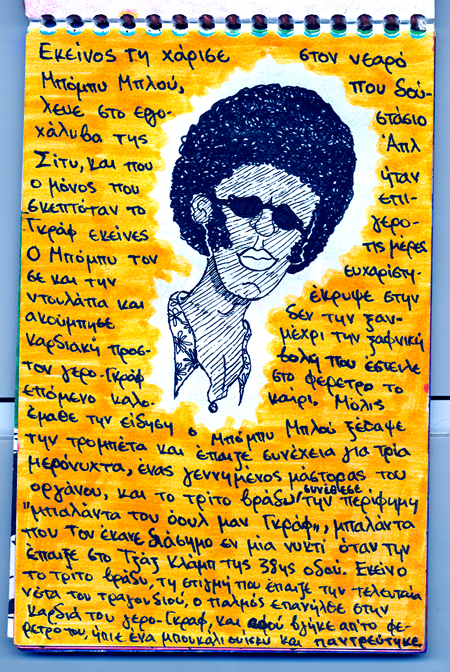 Εκείνος τη χάρισε στον νεαρό
Μπόμπυ Μπλού, που δού-
λευε στο εργο- στάσιο
χάλυβα της Άπλ
Σίτυ, και που ήταν
ο μόνος που επι-
σκεπτόταν το γερο-
Γκράφ εκείνες τις μέρες
Ο Μπόμπυ τον ευχαρίστη-
σε και την έκρυψε στην
ντουλάπα και δεν την ξαν-
ακούμπησε μέχρι την ξαφνική
καρδιακή προσ- βολή που έστειλε
τον γερο-Γκράφ στο φέρετρο το
επόμενο καλο- καίρι. Μόλις
έμαθε την είδηση ο Μπόμπυ Μπλού ξέθαψε
την τρομπέτα και έπαιξε συνέχεια για τρία
μερόνυχτα, ένας γεννημένος μάστορας του
οργάνου, και το τρίτο βράδυ συνέθεσε την περίφημη
"μπαλάντα του όουλ μαν Γκράφ", μπαλάντα
που τον έκανε διάσημο εν μία νυκτί όταν την
έπαιξε στο Τζάζ Κλάμπ της 38ης οδού. Εκείνο
το τρίτο βράδυ, τη στιγμή που έπαιζε την τελευταία
νότα του τραγουδιού, ο παλμός επανήλθε στην
καρδιά του γερο-Γκραφ, και αφού βγήκε απ'το φέ-
ρετρο του, ήπιε ένα μπουκάλι ουίσκυ και παντρεύτηκε.